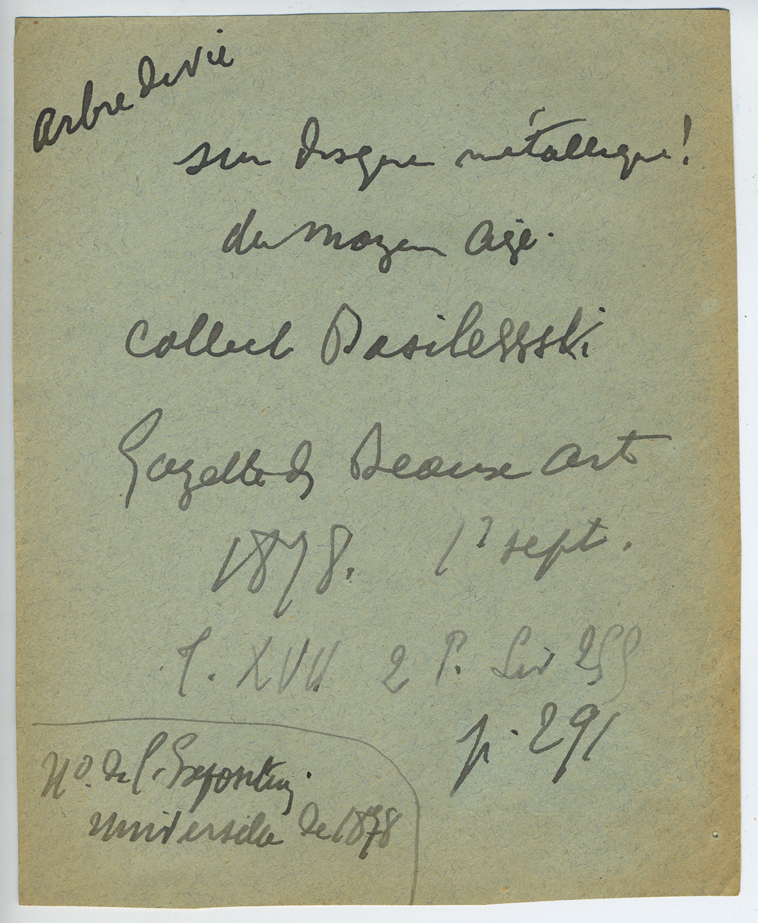 arbre de vie
sur disque métallique!
du moyen age.
collect Basilessski
Gazette des Beaux art
1878. 1r sept.
T. XVII 2 P. Liv 255
p. 291
No. de l'Exposition
universelle de 1878